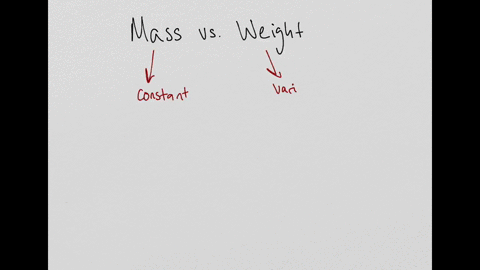 Mass vs. Weight
constant vari